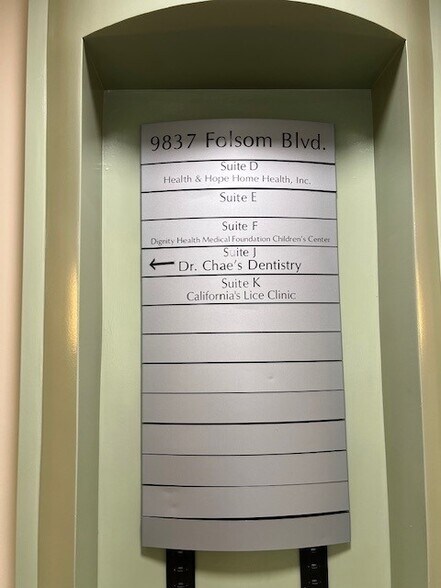 9837 Folsom Blvd.
Suite D
Health & Hope Home Health, Inc.
Suite E
Suite F
Dignity Health Medical Foundation Children's Center
Suite J
Dr. Chae's Dentistry
Suite K
California's Lice Clinic